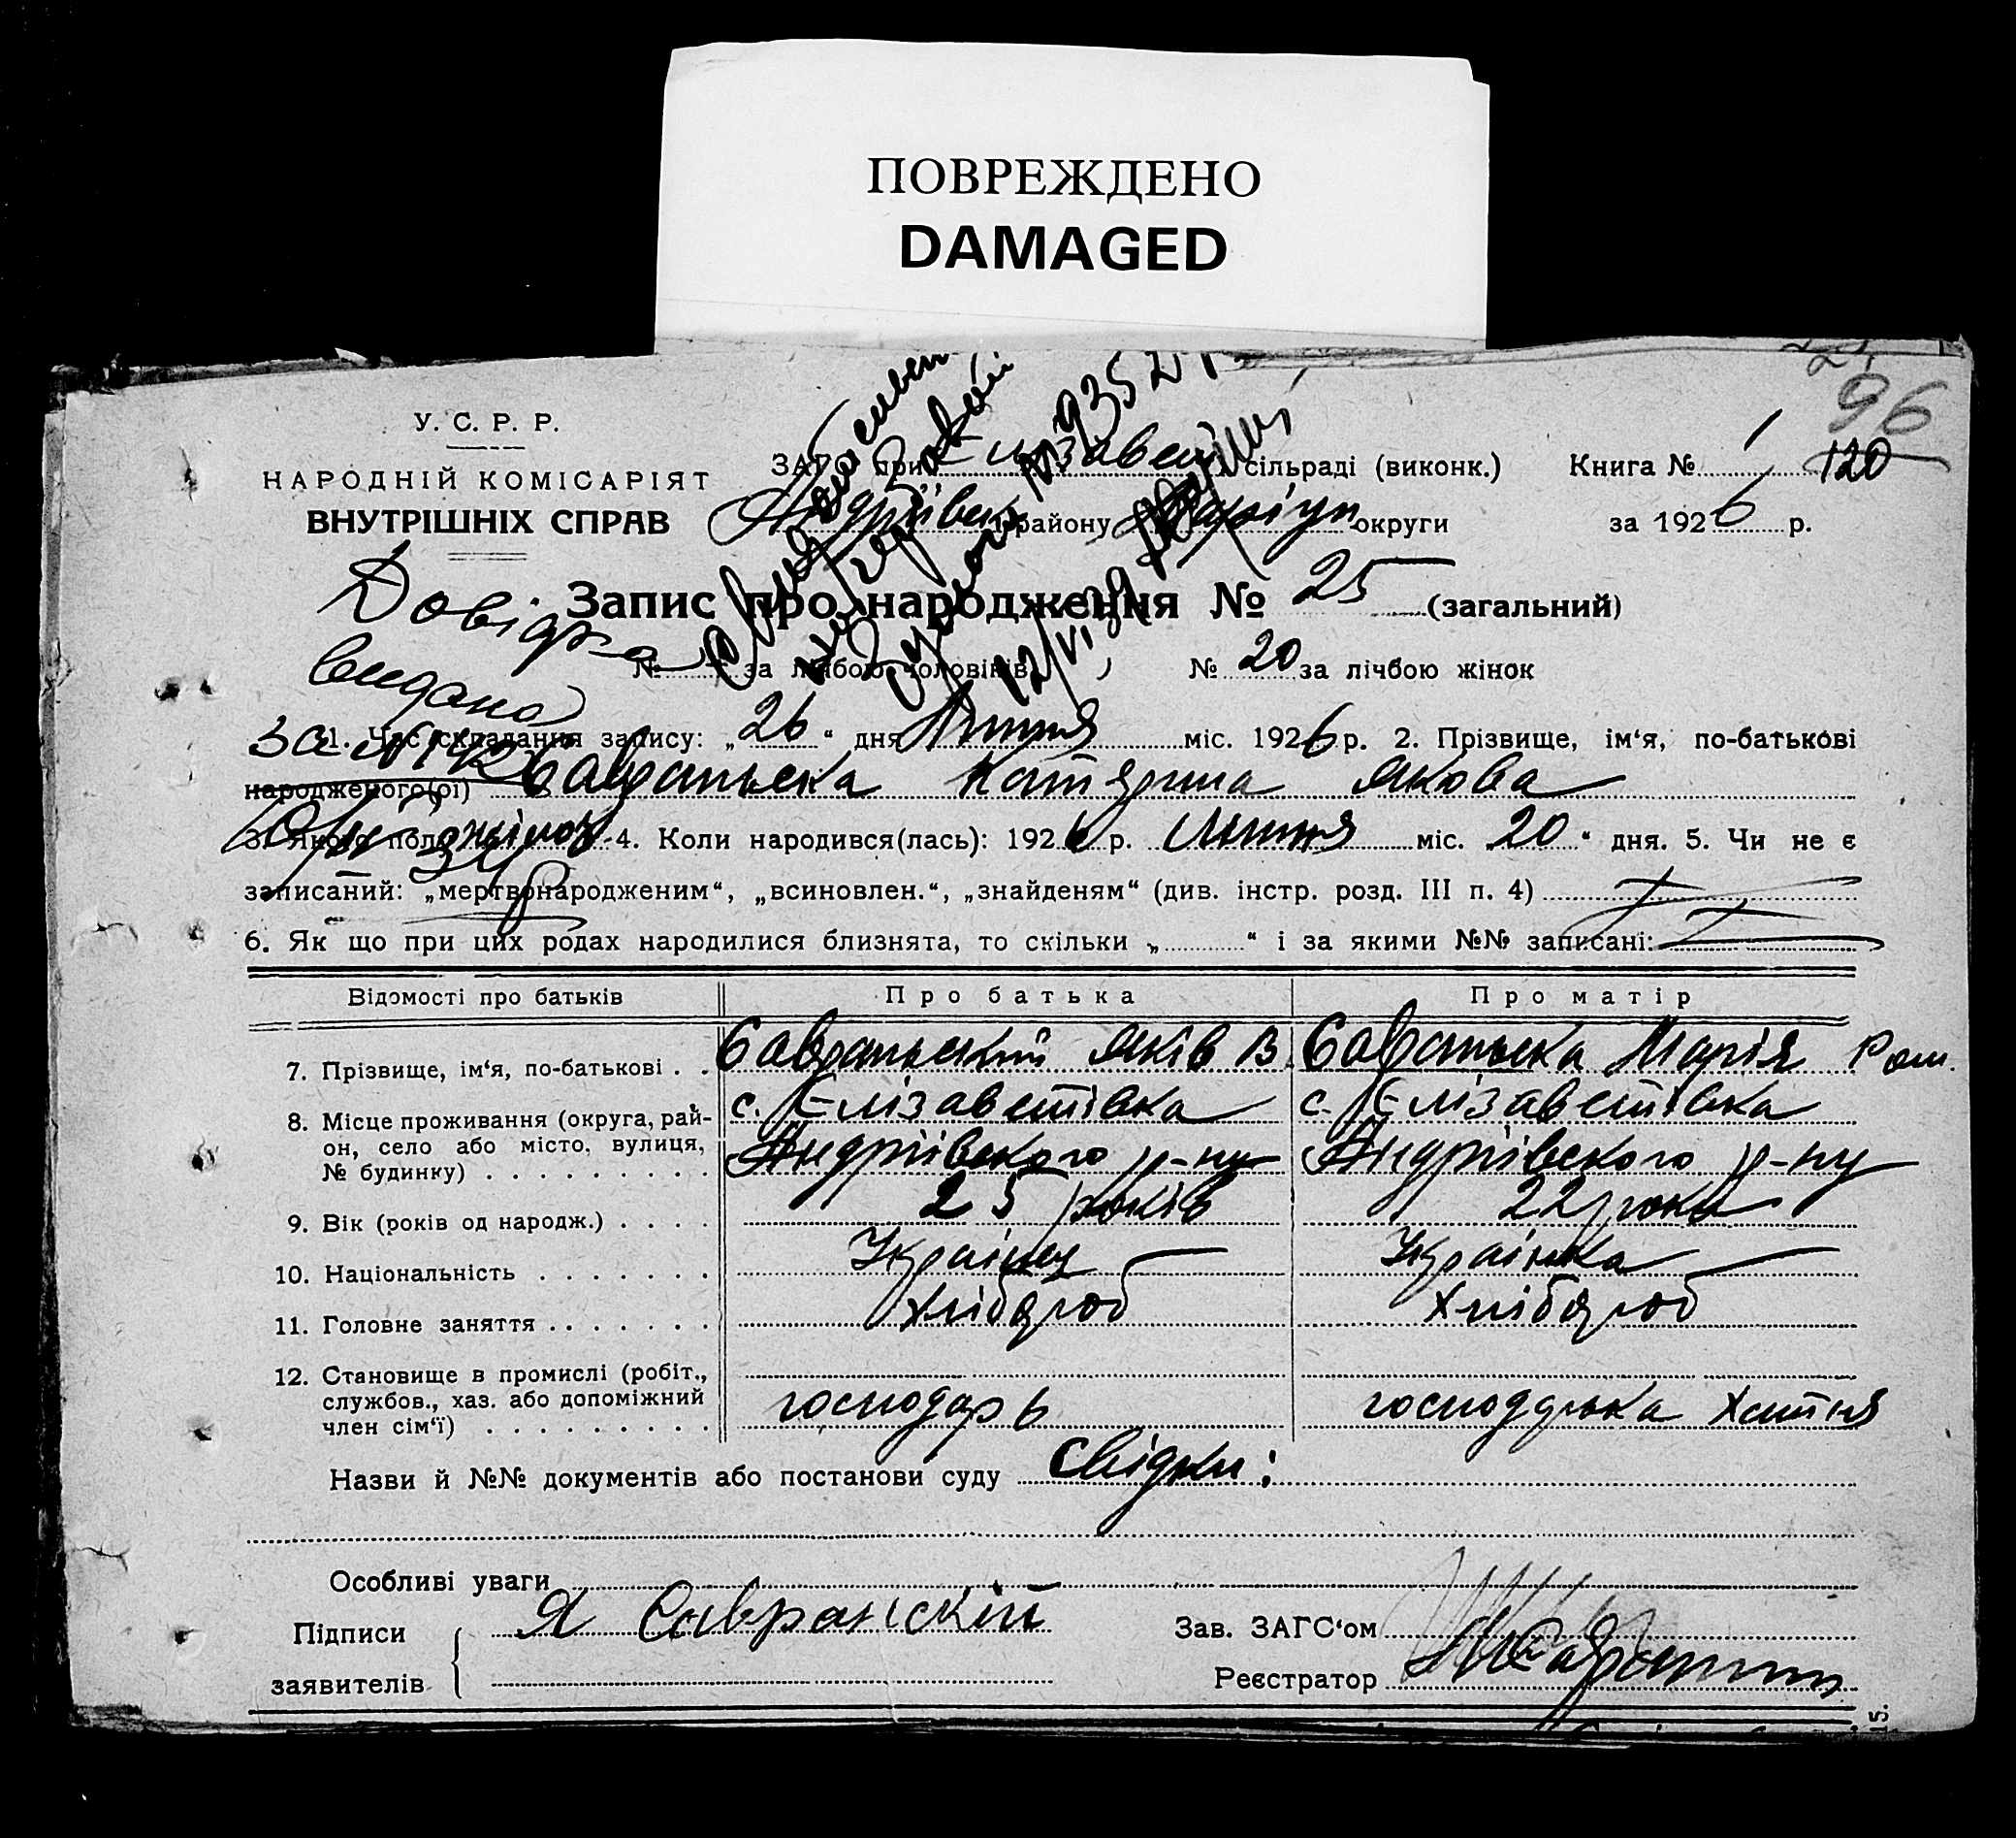 ПОВРЕЖДЕНО
DAMAGED
96
120
У. С. Р. Р.
НАРОДНІЙ КОМІСАРІЯТ
ВНУТРІШНІХ СПРАВ
ЗАГС при Єлізавет сільраді (виконк.) Книга № 1
Андріївськ району округи за 1926 р.
Запис про народження № 25 (загальний)
Довідка
видана
№ за лічбою чоловіків № 20 за лічбою жінок
1. Час складання запису: „26“ дня Липня міс. 1926 р. 2. Прізвище, ім‘я, по-батькові
народженого(ої) Савранська Катярина Якова
3. Якого полу жіноч 4. Коли народився(лась): 1926 р. Липня міс. „20“ дня. 5. Чи не є
записаний: „мертвонародженим“, „всиновлен.“, „знайденям“ (див. інстр. розд. III п. 4)
6. Як що при цих родах народилися близнята, то скільки „ “ і за якими №№ записані:
Відомості про батьків Про батька Про матір
7. Прізвище, ім‘я, по-батькові . . Савранський Яків В. Савранська Марія Ром.
8. Місце проживання (округа, рай- с. Єлізаветівка с. Єлізаветівка
он, село або місто, вулиця, Андріївского р-ну Андріївского р-ну
№ будинку) . . . . . . . . .
9. Вік (років од народж.) . . . . 25 років 22 роки
10. Національність . . . . . . . Українц Українка
11. Головне заняття . . . . . . . Хлібороб Хлібороб
12. Становище в промислі (робіт.,
службов., хаз. або допоміжний господарь господарька хатня
член сім‘ї) . . . . . . . . .
Назви й №№ документів або постанови суду Свідки:
Особливі уваги
Підписи Я Савранский Зав. ЗАГС‘ом
заявителів Реєстратор